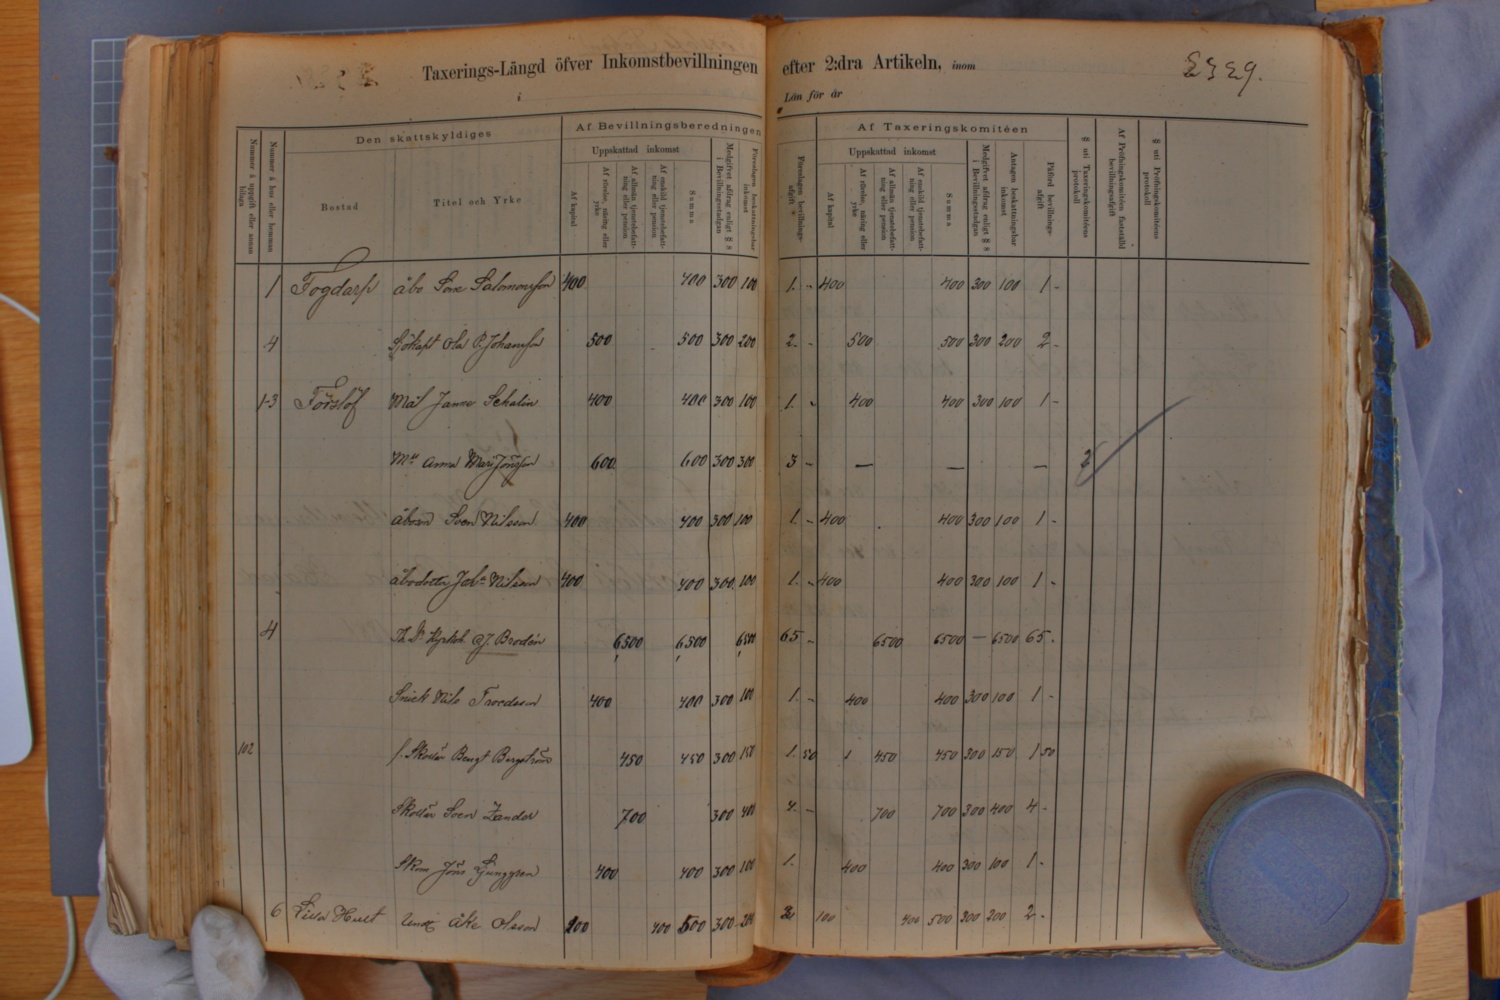 Taxerings-Längd öfver Inkomstbevillningen efter 2:dra Artikeln, inom
£329.
i
Län för år
Nummer å uppgift eller annan bilaga
Nummer å hus eller hemman
Den skattskyldiges
Bostad
Titel och Yrke
Af Bevillningsberedningen
Uppskattad inkomst
Af kapital
Af rörelse, näring eller yrke
Af allmän tjenstebefattning eller pension
Af enskild tjenstebefattning eller pension
Summa
Medgifvet afdrag enligt § 8 i Bevillningsstadgan
Föreslagen beskattningsbar inkomst
Föreslagen bevillningsafgift
Af Taxeringskomitéen
Uppskattad inkomst
Af kapital
Af rörelse, näring eller yrke
Af allmän tjenstebefattning eller pension
Af enskild tjenstebefattning eller pension
Summa
Medgifvet afdrag enligt § 8 i Bevillningsstadgan
Antagen beskattningsbar inkomst
Påförd bevillningsafgift
§ uti Taxeringskomitéens protokoll
Af Pröfningskomitéen fastställd bevillningsafgift
§ uti Pröfningskomitéens protokoll
1 Fogdarp åbo Salomonsson 400 400 300 100 1. - 400 400 300 100 1 -
4 Sjökapt Ola P. Johansson 500 500 300 200 2. - 500 500 300 200 2 -
1-3 Förslöf Mål Janne Schalin 400 400 300 100 1. - 400 400 300 100 1 -
Anna 600 600 300 300 3 - — — — 2
Sven Nilsson 400 400 300 100 1. - 400 400 300 100 1 -
åbodotter Nilsson 400 400 300 100 1. - 400 400 300 100 1 -
4 Kyrkoh. Brodén 6500 6500 6500 65 - 6500 6500 — 6500 65 -
Snick Nils Troedsson 400 400 300 100 1. - 400 400 300 100 1 -
102 f. Skollär Bengt Bergström 450 450 300 150 1. 50 450 450 300 150 1 50
Skollär Sven Zander 700 300 400 4 - 700 700 300 400 4 -
Jöns Ljunggren 400 400 300 100 1. 400 400 300 100 1 -
6 Lilla Hult Åke Olsson 100 400 500 300 200 2 100 400 500 300 200 2 -